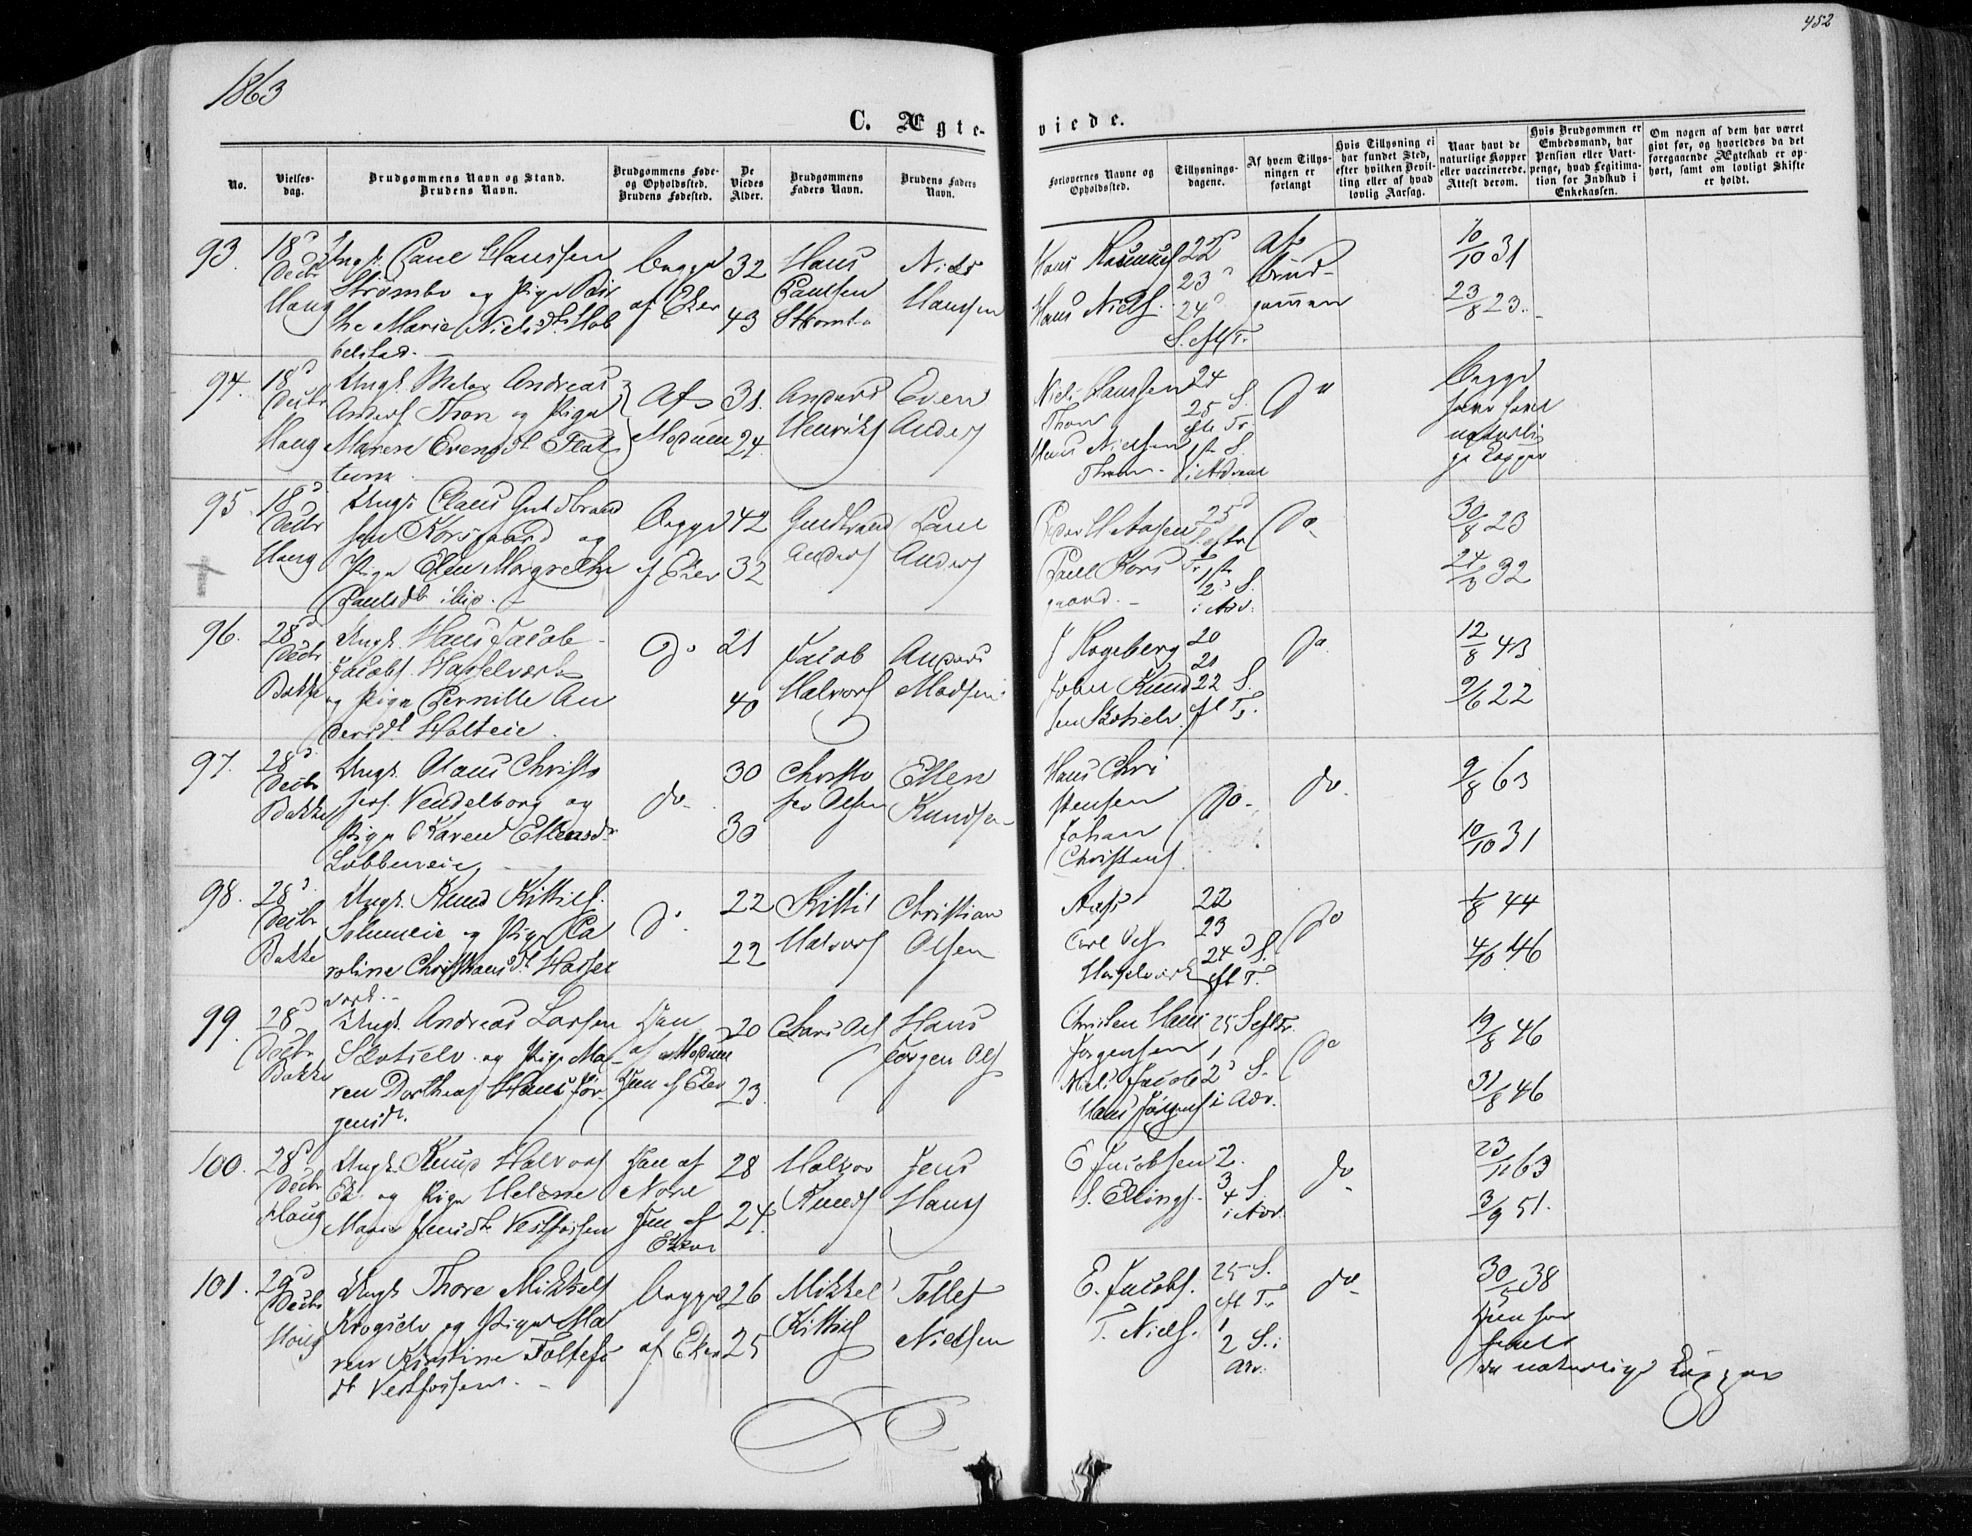 452
1863
C. Ægte-
viede.
No.
Vielses-
dag.
Brudgommens Navn og Stand.
Brudens Navn.
Brudgommens Føde-
og Opholdssted.
Brudens Fødested.
De
Viedes
Alder.
Brudgommens
Faders Navn.
Brudens Faders
Navn.
Forlovernes Navne og
Opholdssted.
Tillysnings-
dagene.
Af hvem Tillys-
ningen er
forlangt
Hvis Tillysning ei
har fundet Sted,
efter hvilken Bevil-
ling eller af hvad
lovlig Aarsag.
Naar havt de
naturlige Kopper
eller vaccinerede.
Attest derom.
Hvis Brudgommen er
Embedsmand, har
Pension eller Vart-
penge, hvad Legitima-
tion for Indskud i
Enkekassen.
Om nogen af dem har været
givt før, og hvorledes da det
foregaaende Ægteskab er op-
hørt, samt om lovligt Skifte
er holdt.
93.
18de
Decbr
Haug
Ungk. Paul Hanssen
Strømbo og Pige
the Marie Nielsdt. Hob
belstad.
Begge
af Eker
32
43
Hans
Paulsen
Strømbo
Niels
Hanssen
Hans Rasmus
Hans Niels.
22
23
24
S. eft T.
af
Brud-
gommen
10/10 31
23/8 23.
94.
18d
Decbr
Haug
Ungk. Peder Andreas
Anders Thon og Pige
Maren Evensdt. Flat
Af
Modum
31.
24.
Anders
Henriks
Even
Anders
Niels Hanssen
Thon
Hans Nielsen
Thon
24
25 S.
eft Tr
1st S.
i Advent
Do
Begge
have havt
naturli
ge Kopper
95
18d
Decbr
Haug
Ungk. Claus Guldbrand
sen Korsgaard og
Pige Elen Margrethe
Paulsdt. ibid.
Begge
af Eker
42
32
Guldbrand
Anders
Paul
Anders
Paul Kors
gaard.
25d
1st
2d S.
i Adv.
Do.
30/8 23
24/8 32
96.
28d
Decbr
Bakke
Ungk. Hans Jacob
Jacobs. Hasselværk
og Pige Pernille An
dersdt. Holteie.
Do
21
40
Jacob
Halvors
Anders
Madsen
J Kogeberg
Johan Knud
sen Skotselv.
20
21
22 S.
eft Tr.
Do.
12/8 43
9/6 22
97.
28d.
Decbr
Bakke
Ungk. Claus Christo
fers. Vendelborg og
Pige Karen Ellensdr
Lobbeneie
do.
30
30
Christo
fer Olsen
Ellen
Knudsen
Hans Chri
stensen
Johan
Christens
Do.
do.
9/8 63
10/10 31
98.
28d.
Decbr
Bakke
Ungk. Knud Kittils.
Solumeie og Pige Ca
roline Christiansdt. Hassel
værk.
Do.
22
22
Kittil
Halvors
Christian
Olsen
Carl Ols
Hasselværk
22
23
24d S.
eft T.
Do
1/8 44
4/10 46
99.
28d
Decbr
Bakke
Ungk. Andreas Larsen
Skotselv og Pige Ma-
ren Dorthea Hans Jør-
gensdt.
Han
af Modum
Hun af Eker
20
23.
Lars Ols
Hans
Jørgen Ols
Christen Hans
Jørgensen
Niels Jacob
Hans Jørgens
25 S eft Tr.
1
2d S.
i Adv.
Do
19/8 46
31/8 46
100.
28d
Decbr
Haug
Ungk. Knud Halvors
Ek og Pige Helene
Marie Jensdt. Vestfossen
Han af
Nore
Hun af
Eker
28
24.
Halvor
Knuds
Jens
Hans
E. Jacobsen
S. Ellings.
2.
3
4 S
i Adv.
Do
23/11 63
3/9 51.
101.
29d
Decbr
Haug
Ungk. Thore Mikkels
Krogselv og Pige Ma
ren Kirstine Tollefs
dt. Vestfossen.
Begge
af Eker
26
25
Mikkel
Kittils
Tollef
Nielsen
E. Jacobs.
T. Niels.
25 S.
eft Tr
1
2 S. i
Adv.
do
30/5 38
Hun har
havt
de naturlige Kopper